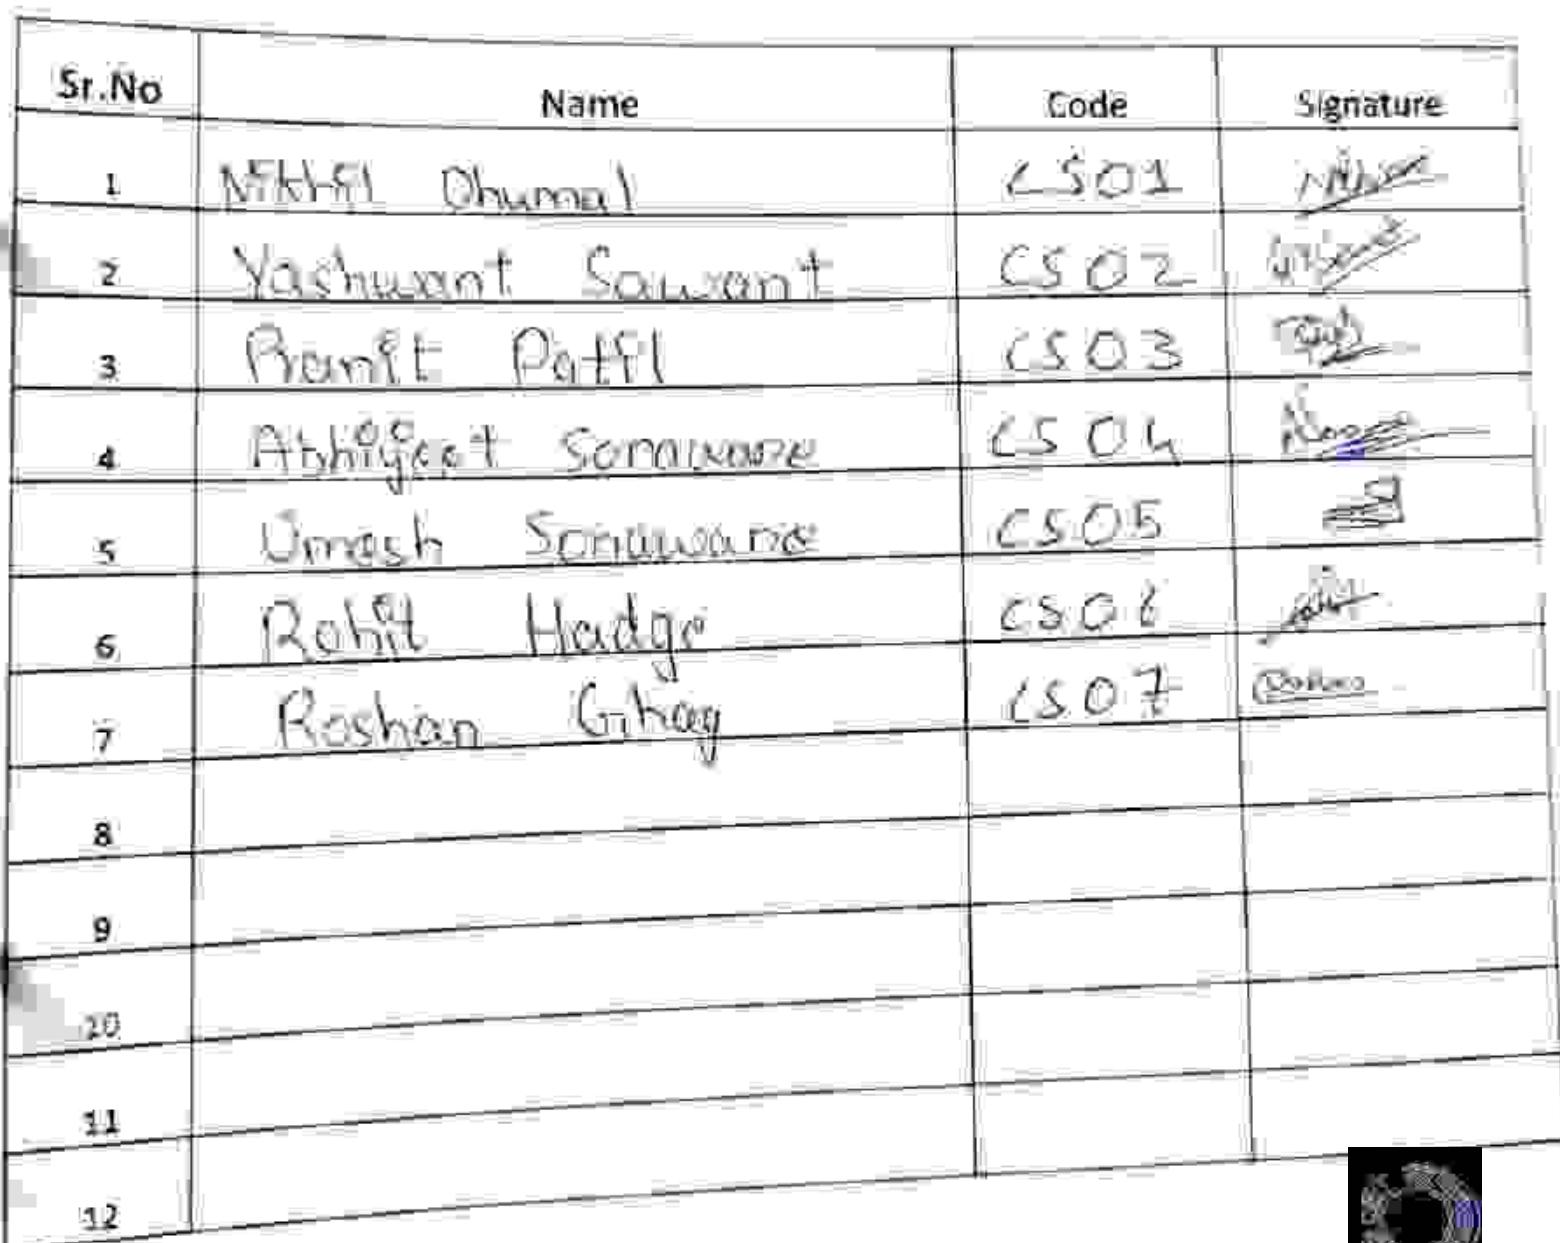 Sr.No Name Code Signature
1 Nikhil Dhumal CS01
2 Yashwant Sawant CS02
3 Ranjit Patil CS03
4 Abhijeet Sonawane CS04
5 Umesh Sonawane CS05
6 Rohit Hadge CS06
7 Roshan Ghag CS07
8
9
10
11
12